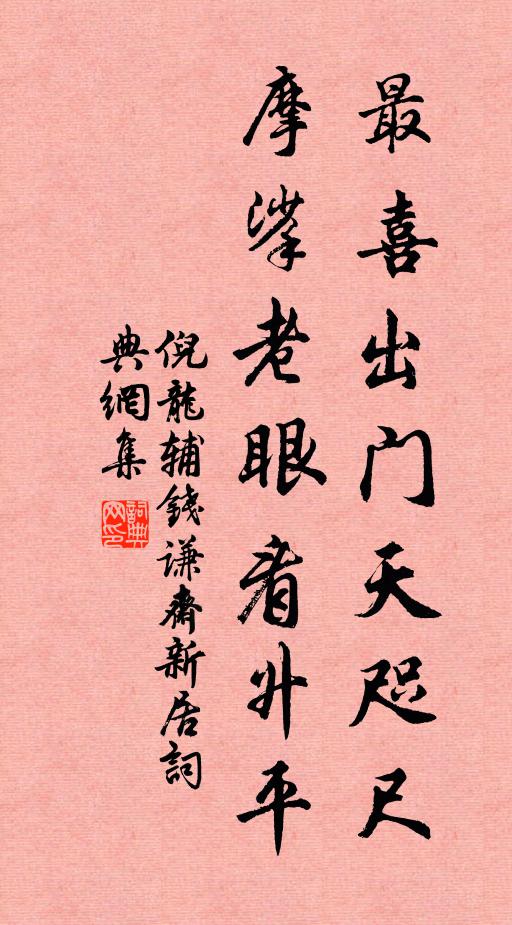 最喜出门天咫尺
摩挲老眼看升平
倪龍辅錢谦齋新居詞
典網集
詞典
网印